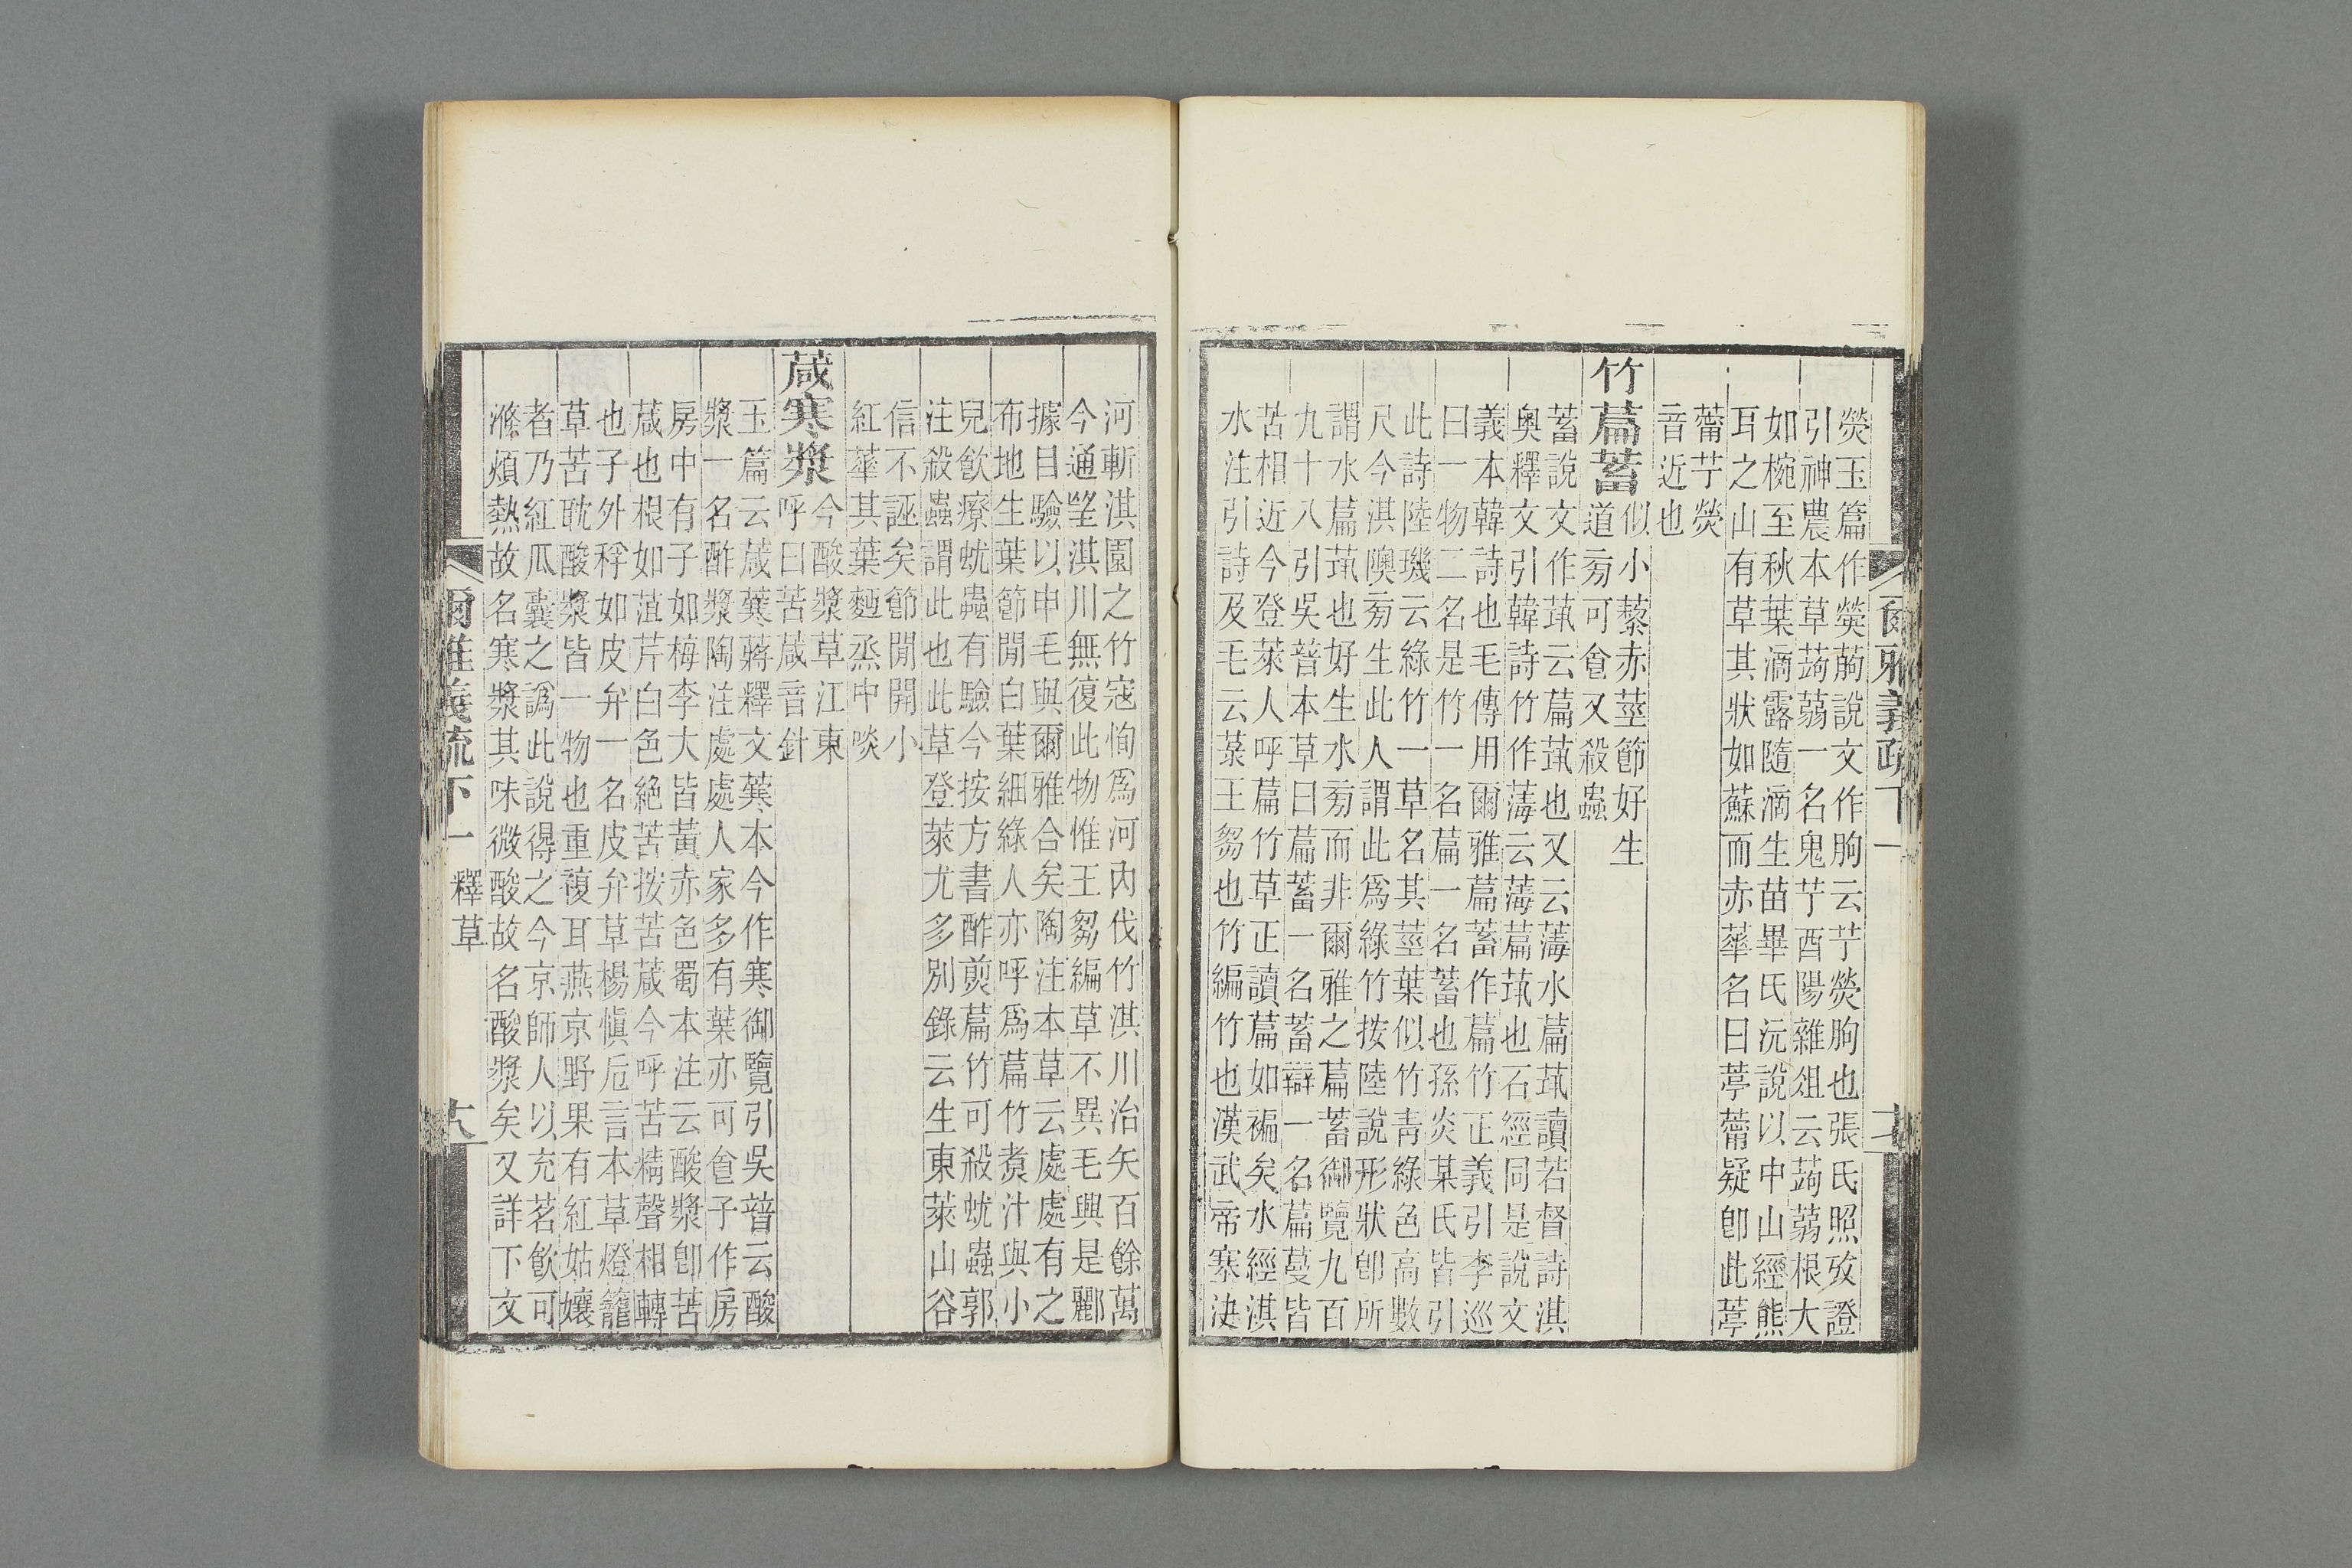 熒玉篇作䓇說文作朐云艼熒朐也張氏照攷證
引神農本草蒟蒻一名鬼芋酉陽雜俎云蒟蒻根大
如椀至秋葉滴露隨滴生苗畢氏沅說以中山經熊
耳之山有草其狀如蘇而赤華名曰葶薴疑卽此葶
薴艼熒
音近也
竹萹蓄
似小藜赤莖節好生
道㫄可食又殺蟲
蓄說文作茿云萹茿也又云薄水萹茿讀若督詩淇
奧釋文引韓詩竹作薄云薄萹茿也石經同是說文
義本韓詩也毛傳用爾雅萹蓄作萹竹正義引李巡
曰一物二名是竹一名萹一名蓄也孫炎某氏皆引
此詩陸璣云綠竹一草名其莖葉似竹青綠色高數
尺今淇隩㫄生此人謂此爲綠竹按陸說形狀卽所
謂水萹茿也好生水㫄而非爾雅之萹蓄御覽九百
九十八引吳普本草曰萹蓄一名蓄辯一名萹蔓皆
苦相近今登萊人呼萹竹草正讀萹如褊矣水經淇
水注引詩及毛云菉王芻也竹編竹也漢武帝塞決
爾雅義疏下一
十七
河斬淇園之竹寇恂爲河內伐竹淇川治矢百餘萬
今通望淇川無復此物惟王芻編草不異毛與是酈
據目驗以申毛與爾雅合矣陶注本草云處處有之
布地生葉節閒白葉細綠人亦呼爲萹竹煑汁與小
兒飮療蚘蟲有驗今按方書酢煎萹竹可殺蚘蟲郭
注殺蟲謂此也此草登萊尤多別錄云生東萊山谷
信不誣矣節閒開小
紅華其葉麪烝中啖
葴寒漿
今酸漿草江東
呼曰苦葴音針
玉篇云葴蓂蔣釋文蓂本今作寒御覽引吳普云酸
漿一名酢漿陶注處處人家多有葉亦可食子作房
房中有子如梅李大皆黃赤色蜀本注云酸漿卽苦
葴也根如菹芹白色絶苦按苦葴今呼苦精聲相轉
也子外稃如皮弁一名皮弁草楊愼巵言本草燈籠
草苦耽酸漿皆一物也重複耳燕京野果有紅姑孃
者乃紅瓜囊之譌此說得之今京師人以充茗飮可
滌煩熱故名寒漿其味微酸故名酸漿矣又詳下文
爾雅義疏下一 釋草
十八